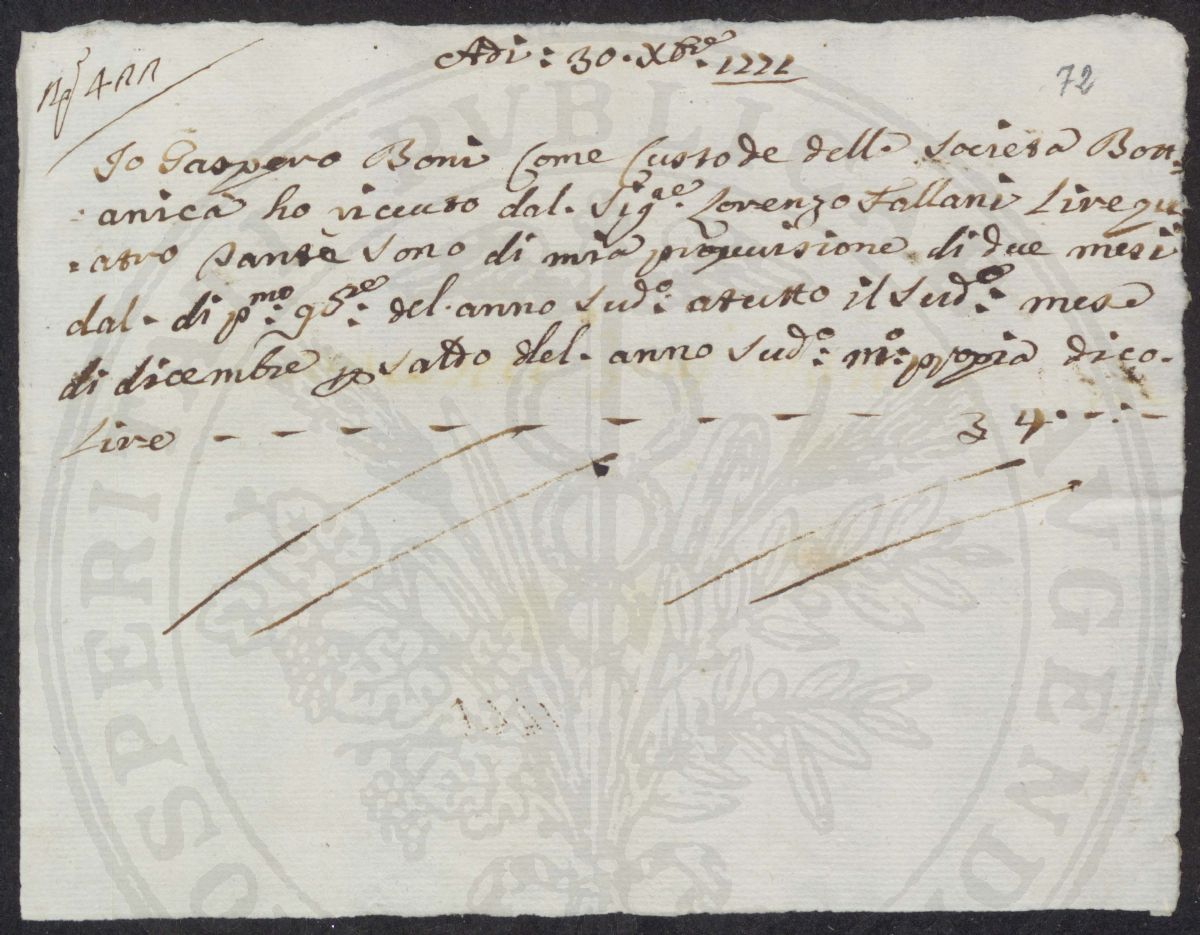 Adi: 30. Xbre. 1771
72
Io Gaspero Boni Come Custode dell. Società Bott-
anica ho riceuto dal. Sig.re Lorenzo Fallani Lire qu
atro sono di mia provisione di due mesi
dal. di p.mo 9bre. del. anno Sud.o atutto il Sud.o mese
di dicembre p saldo del. anno Sud.o m.o propia dico.
Lire 4